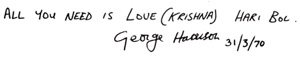 ALL YOU NEED IS LOVE (KRISHNA) HARI BOL.
George Harrison 31/3/70